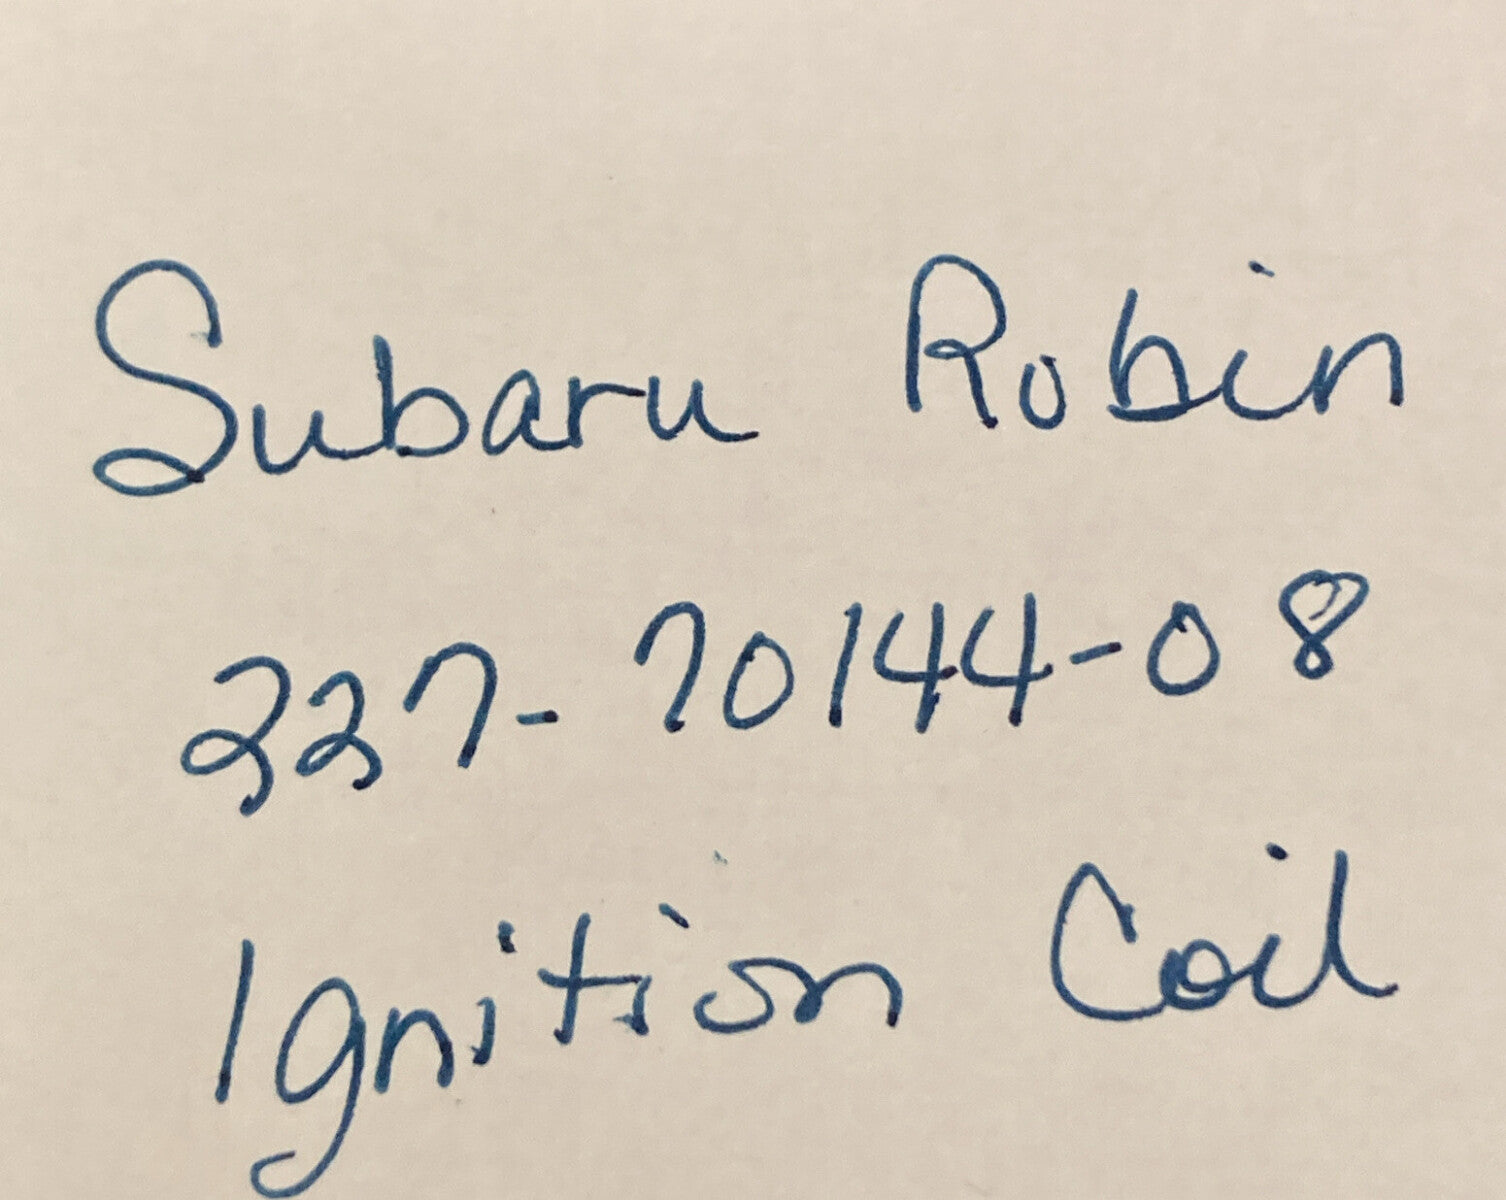 Subaru Robin
227-70144-08
Ignition Coil